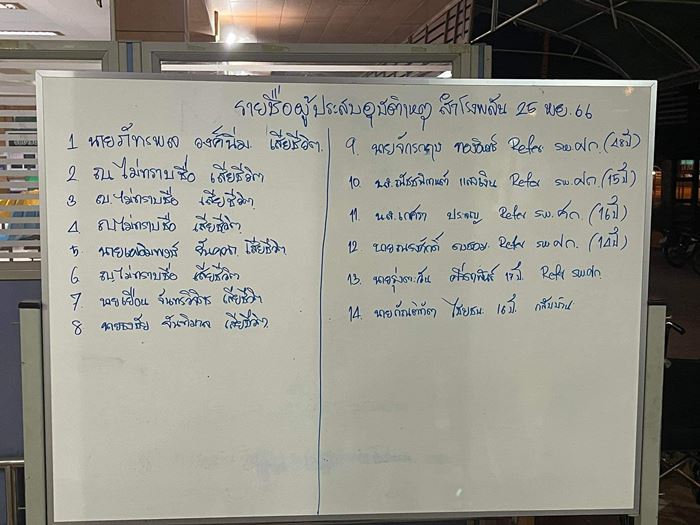 รายชื่อผู้ประสบอุบัติเหตุ สำโรงพลัน 25 พย. 66
1 นายภัทรพล องค์นิ่ม เสียชีวิต
2 ช.ไม่ทราบชื่อ เสียชีวิต
3 ญ.ไม่ทราบชื่อ เสียชีวิต
4 ช.ไม่ทราบชื่อ เสียชีวิต
5 นายเฉลิมพงษ์ เสียชีวิต
6 ช.ไม่ทราบชื่อ เสียชีวิต
7. นายเยือน จันทรวิจิตร เสียชีวิต
8 นายธงชัย จันทิมาศ เสียชีวิต
9. นายจักรกฤษ ทองอินทร์ Refer รพ.ศก. (48ปี)
10. น.ส. แสงเงิน Refer รพ.ศก. (15ปี)
11. น.ส. Refer รพ. ศก. (16ปี)
12. นายณรงค์ศักดิ์ Refer รพ. ศก. (14ปี)
13. นายรุ่งตะวัน 17ปี. Refer รพ.ศก.
14. ไชยชนะ 16ปี. กลับบ้าน